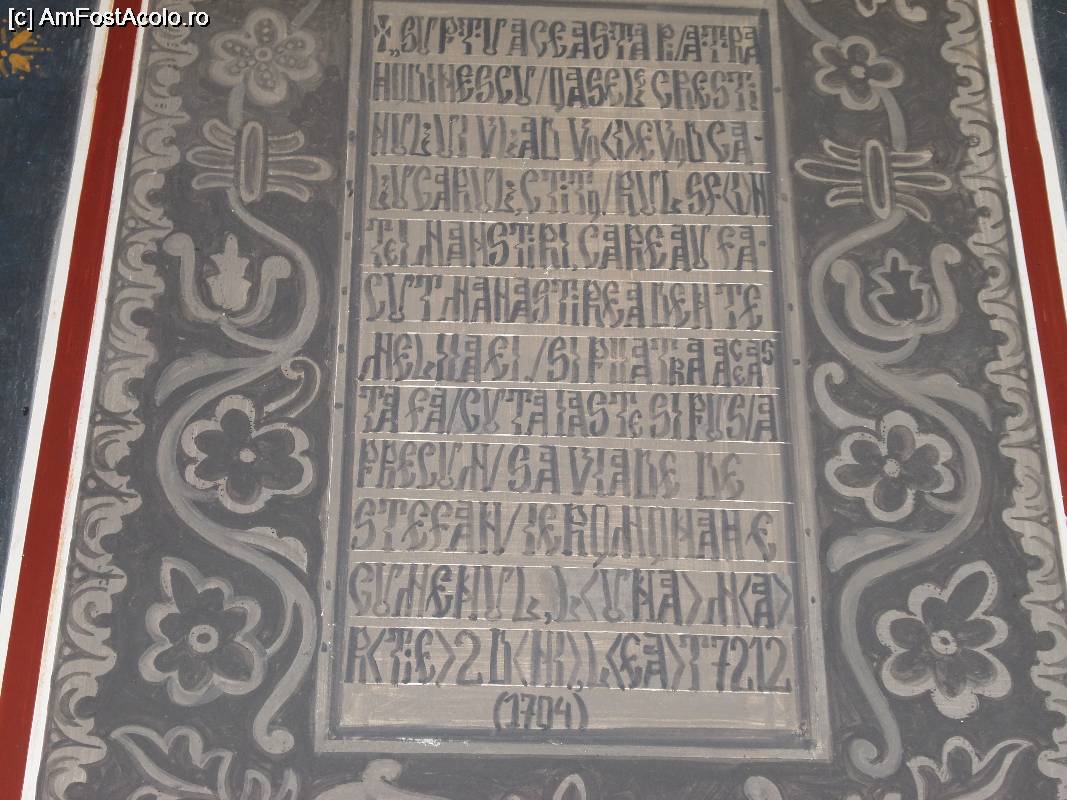 [c] AmFostAcolo.ro
✝„SUPTU ACEASTA PIATRA
HODINESCU/OASELE CRESTI
NULUI VLAD VO<I>EVOD CA-
LUGARUL, CTITO/RUL SF<I>N
TEI MANSTIRI, CARE AU FA-
CUT MANASTIREA DENTE
MELIIA EI,/SI PIIATRA ACEAS
TA FA/CUTA IASTE SI PUS/A
PRECUM/SA VIADE DE
STEFAN/IEROMONAH E
GUMENUL, L<UNA> M<A>
R<TIE> 2 D<NI>, L<EA>T 7212
(1704)